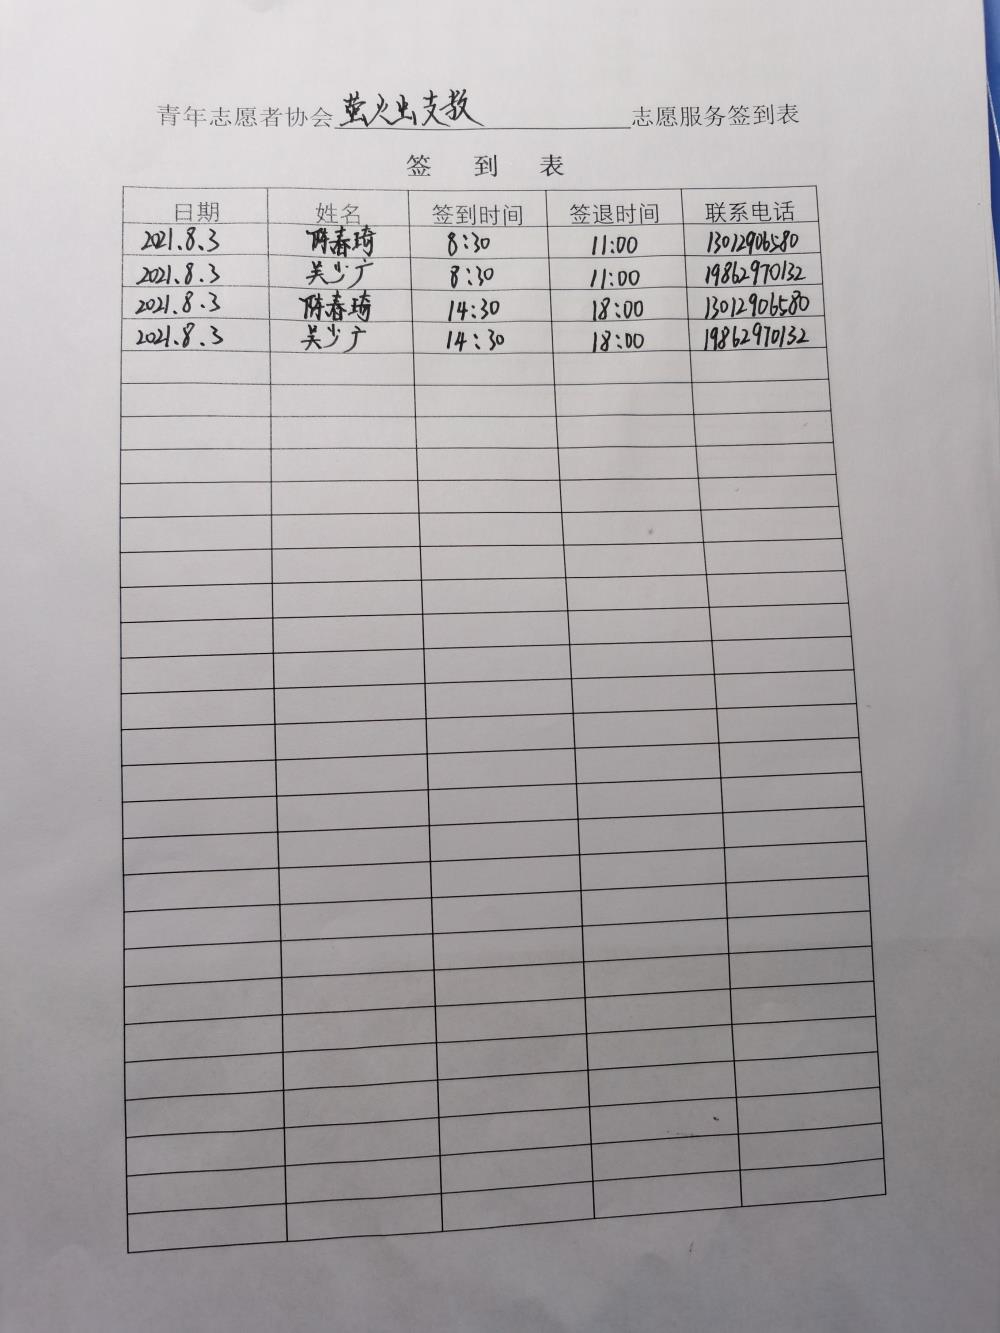 青年志愿者协会萤火虫支教志愿服务签到表
签 到 表
日期 姓名 签到时间 签退时间 联系电话
2021.8.3 陈春琦 8:30 11:00 13012906580
2021.8.3 吴少广 8:30 11:00 19862970132
2021.8.3 陈春琦 14:30 18:00 13012906580
2021.8.3 吴少广 14:30 18:00 19862970132